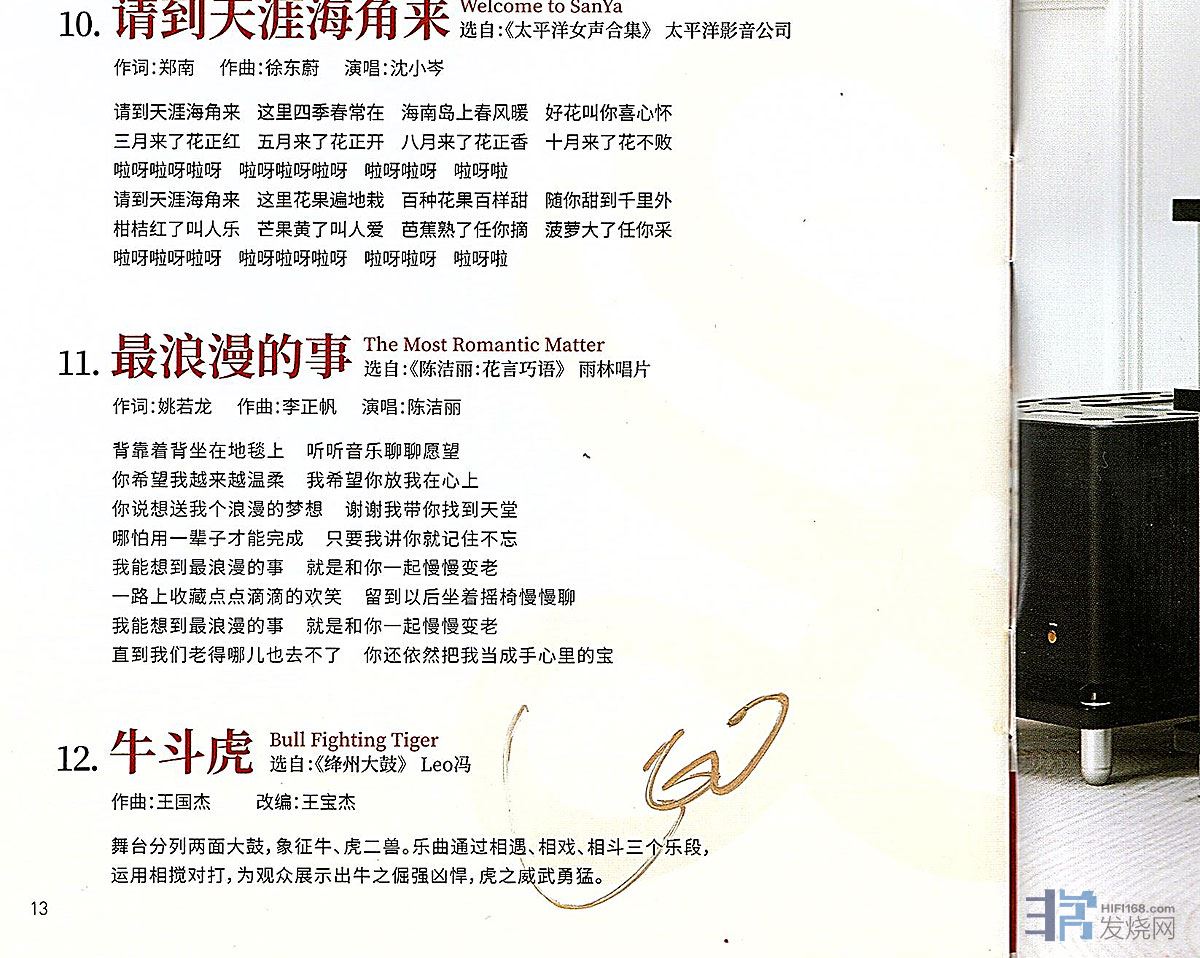 10. 请到天涯海角来 Welcome to SanYa
选自:《太平洋女声合集》 太平洋影音公司
作词:郑南 作曲:徐东蔚 演唱:沈小岑
请到天涯海角来 这里四季春常在 海南岛上春风暖 好花叫你喜心怀
三月来了花正红 五月来了花正开 八月来了花正香 十月来了花不败
啦呀啦呀啦呀 啦呀啦呀啦呀 啦呀啦呀 啦呀啦
请到天涯海角来 这里花果遍地栽 百种花果百样甜 随你甜到千里外
柑桔红了叫人乐 芒果黄了叫人爱 芭蕉熟了任你摘 菠萝大了任你采
啦呀啦呀啦呀 啦呀啦呀啦呀 啦呀啦呀 啦呀啦
11. 最浪漫的事 The Most Romantic Matter
选自:《陈洁丽:花言巧语》 雨林唱片
作词:姚若龙 作曲:李正帆 演唱:陈洁丽
背靠着背坐在地毯上 听听音乐聊聊愿望
你希望我越来越温柔 我希望你放我在心上
你说想送我个浪漫的梦想 谢谢我带你找到天堂
哪怕用一辈子才能完成 只要我讲你就记住不忘
我能想到最浪漫的事 就是和你一起慢慢变老
一路上收藏点点滴滴的欢笑 留到以后坐着摇椅慢慢聊
我能想到最浪漫的事 就是和你一起慢慢变老
直到我们老得哪儿也去不了 你还依然把我当成手心里的宝
12. 牛斗虎 Bull Fighting Tiger
选自:《绛州大鼓》 Leo冯
作曲:王国杰 改编:王宝杰
舞台分列两面大鼓,象征牛、虎二兽。乐曲通过相遇、相戏、相斗三个乐段,
运用相搅对打,为观众展示出牛之倔强凶悍,虎之威武勇猛。
13
HIFI168.com
发烧网